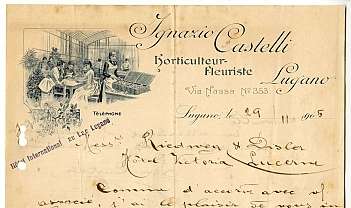 Ignazio Castelli
Horticulteur-
Fleuriste
Lugano
Via Nassa No 353.
TÉLÉPHONE
Lugano, le 29 11 1905
Hôtel International au Lac Lugano
Mess. Riedweg &
Hôtel Victoria Lucerne
Comme d'accord avec
associé, j'ai le plaisir de vous